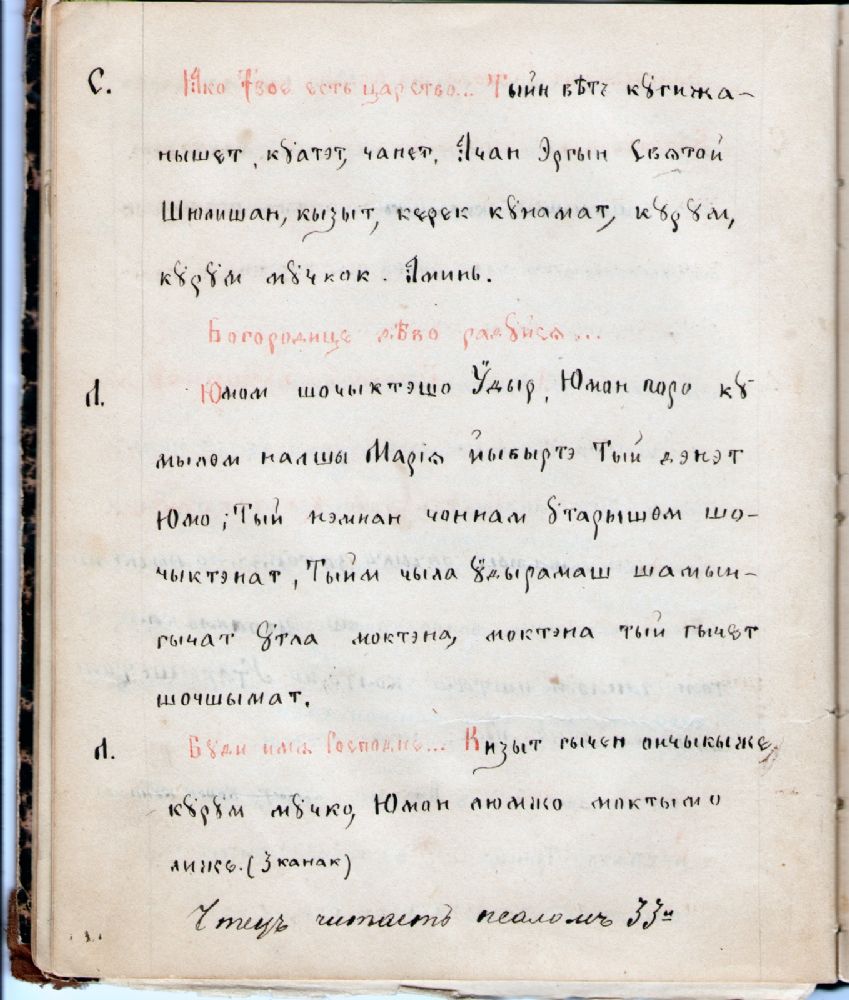 С. Яко Твое есть царство... Тыйн вѣтъ кугижа-
нышет, куатэт, чапет, Ачан Эргын Святой
Шюлишан, кызыт, керек кунамат, курум,
курум мучкок. Аминь.
Богородице дѣво радуйся...
Л. Юмом шочыктэшо Ӱдыр, Юмон поро ку
мылом налшы Марія йывыртэ Тый дэнэт
Юмо; Тый нэмнан чоннам утарышом шо-
чыктэнат, Тыйм чыла ӱдырамаш шамын-
гычат утла моктэна, моктэна тый гычет
шочшымат.
Л. Буди имя Господне... Кызыт гычен ончыкыже,
курум мучко, Юмон люмжо моктымо
лиже. (3 канак)
Чтецъ читаетъ псаломъ 33й